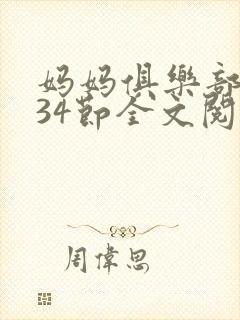 妈妈俱樂部
34節全文閱
周偉思